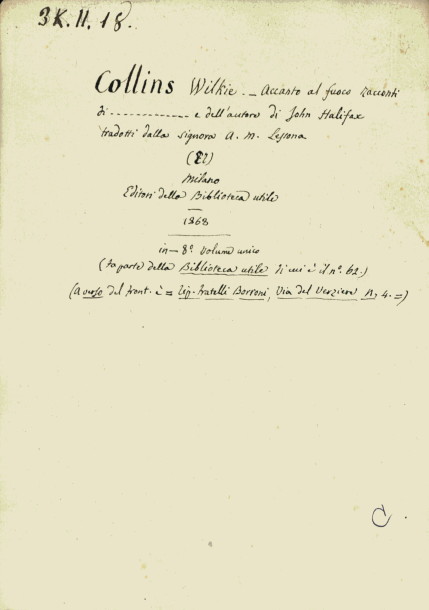 3K.II.18.
Collins Wilkie. _ Accanto al fuoco racconti
di ------------ e dell'autore di John Halifax
tradotti dalla signora A. M. Lessona
Milano
Editori della Biblioteca utile
1868
in-8º. Volume unico
(Fa parte della Biblioteca utile di cui è il nº. 62.)
(a verso del front. è = Tip. Fratelli Borroni, Via del Verziere N, 4. =)
C.